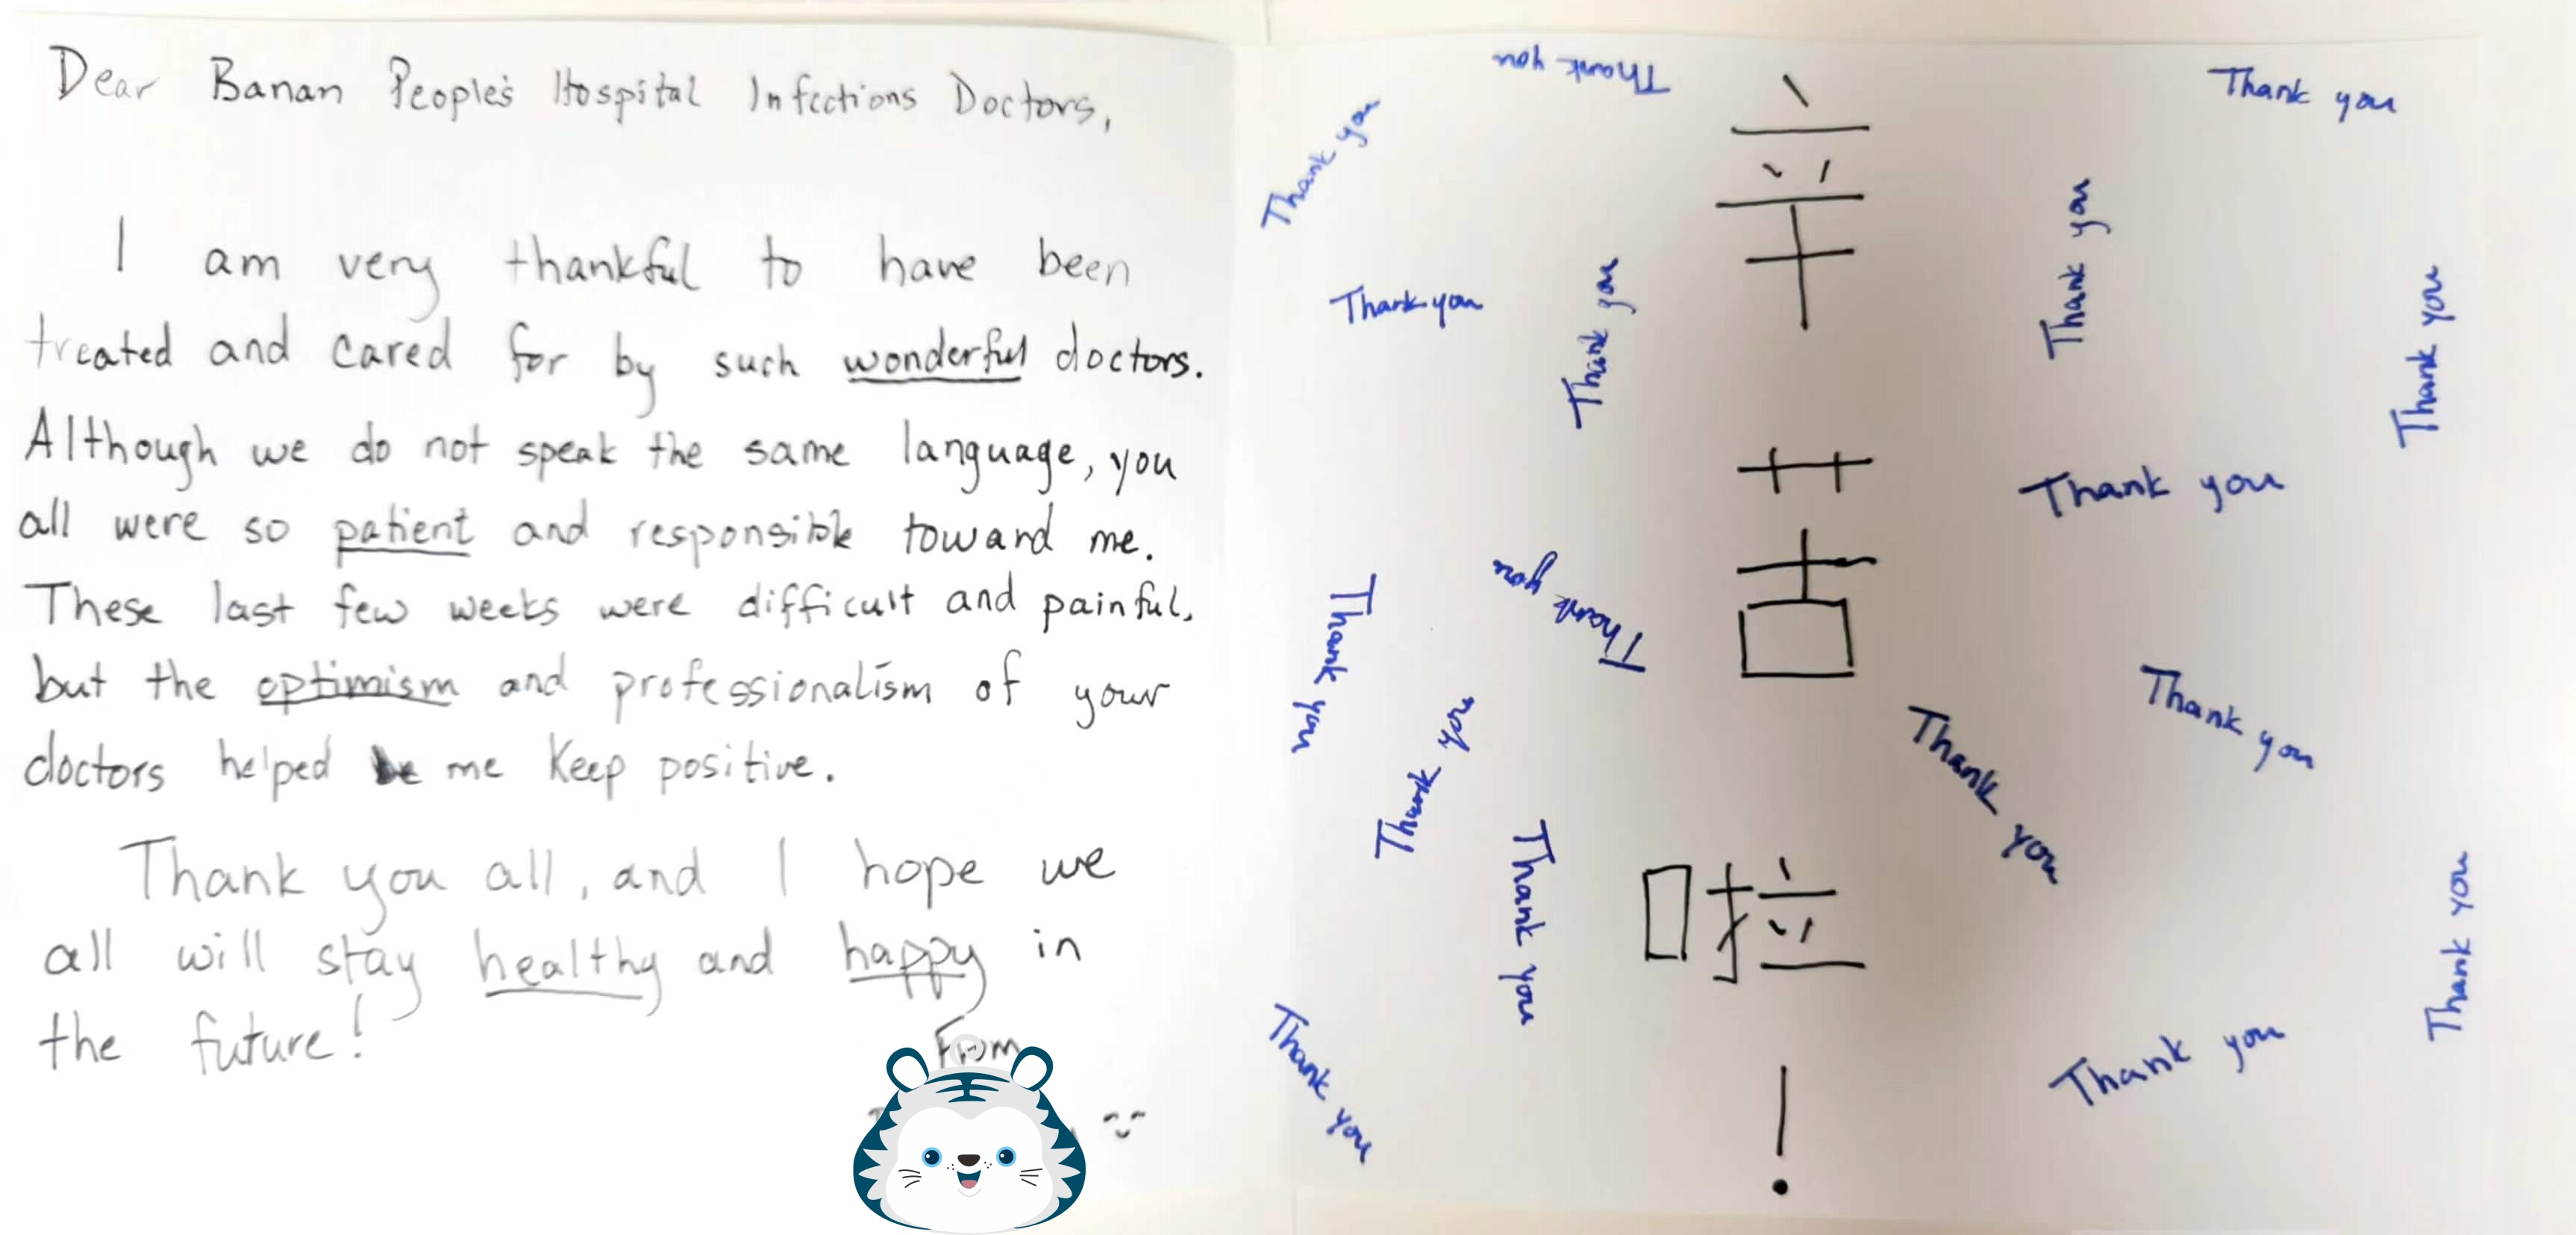 Dear Banan People's Hospital Infections Doctors,
I am very thankful to have been
treated and cared for by such wonderful doctors.
Although we do not speak the same language, you
all were so patient and responsible toward me.
These last few weeks were difficult and painful,
but the optimism and professionalism of your
doctors helped me keep positive.
Thank you all, and I hope we
all will stay healthy and happy in
the future!
From
Thank you
Thank you
Thank you
Thank you
Thank you
Thank you
Thank you
Thank you
Thank you
辛
苦
啦
!
Thank you
Thank you
Thank you
Thank you
Thank you
Thank you
Thank you
Thank you